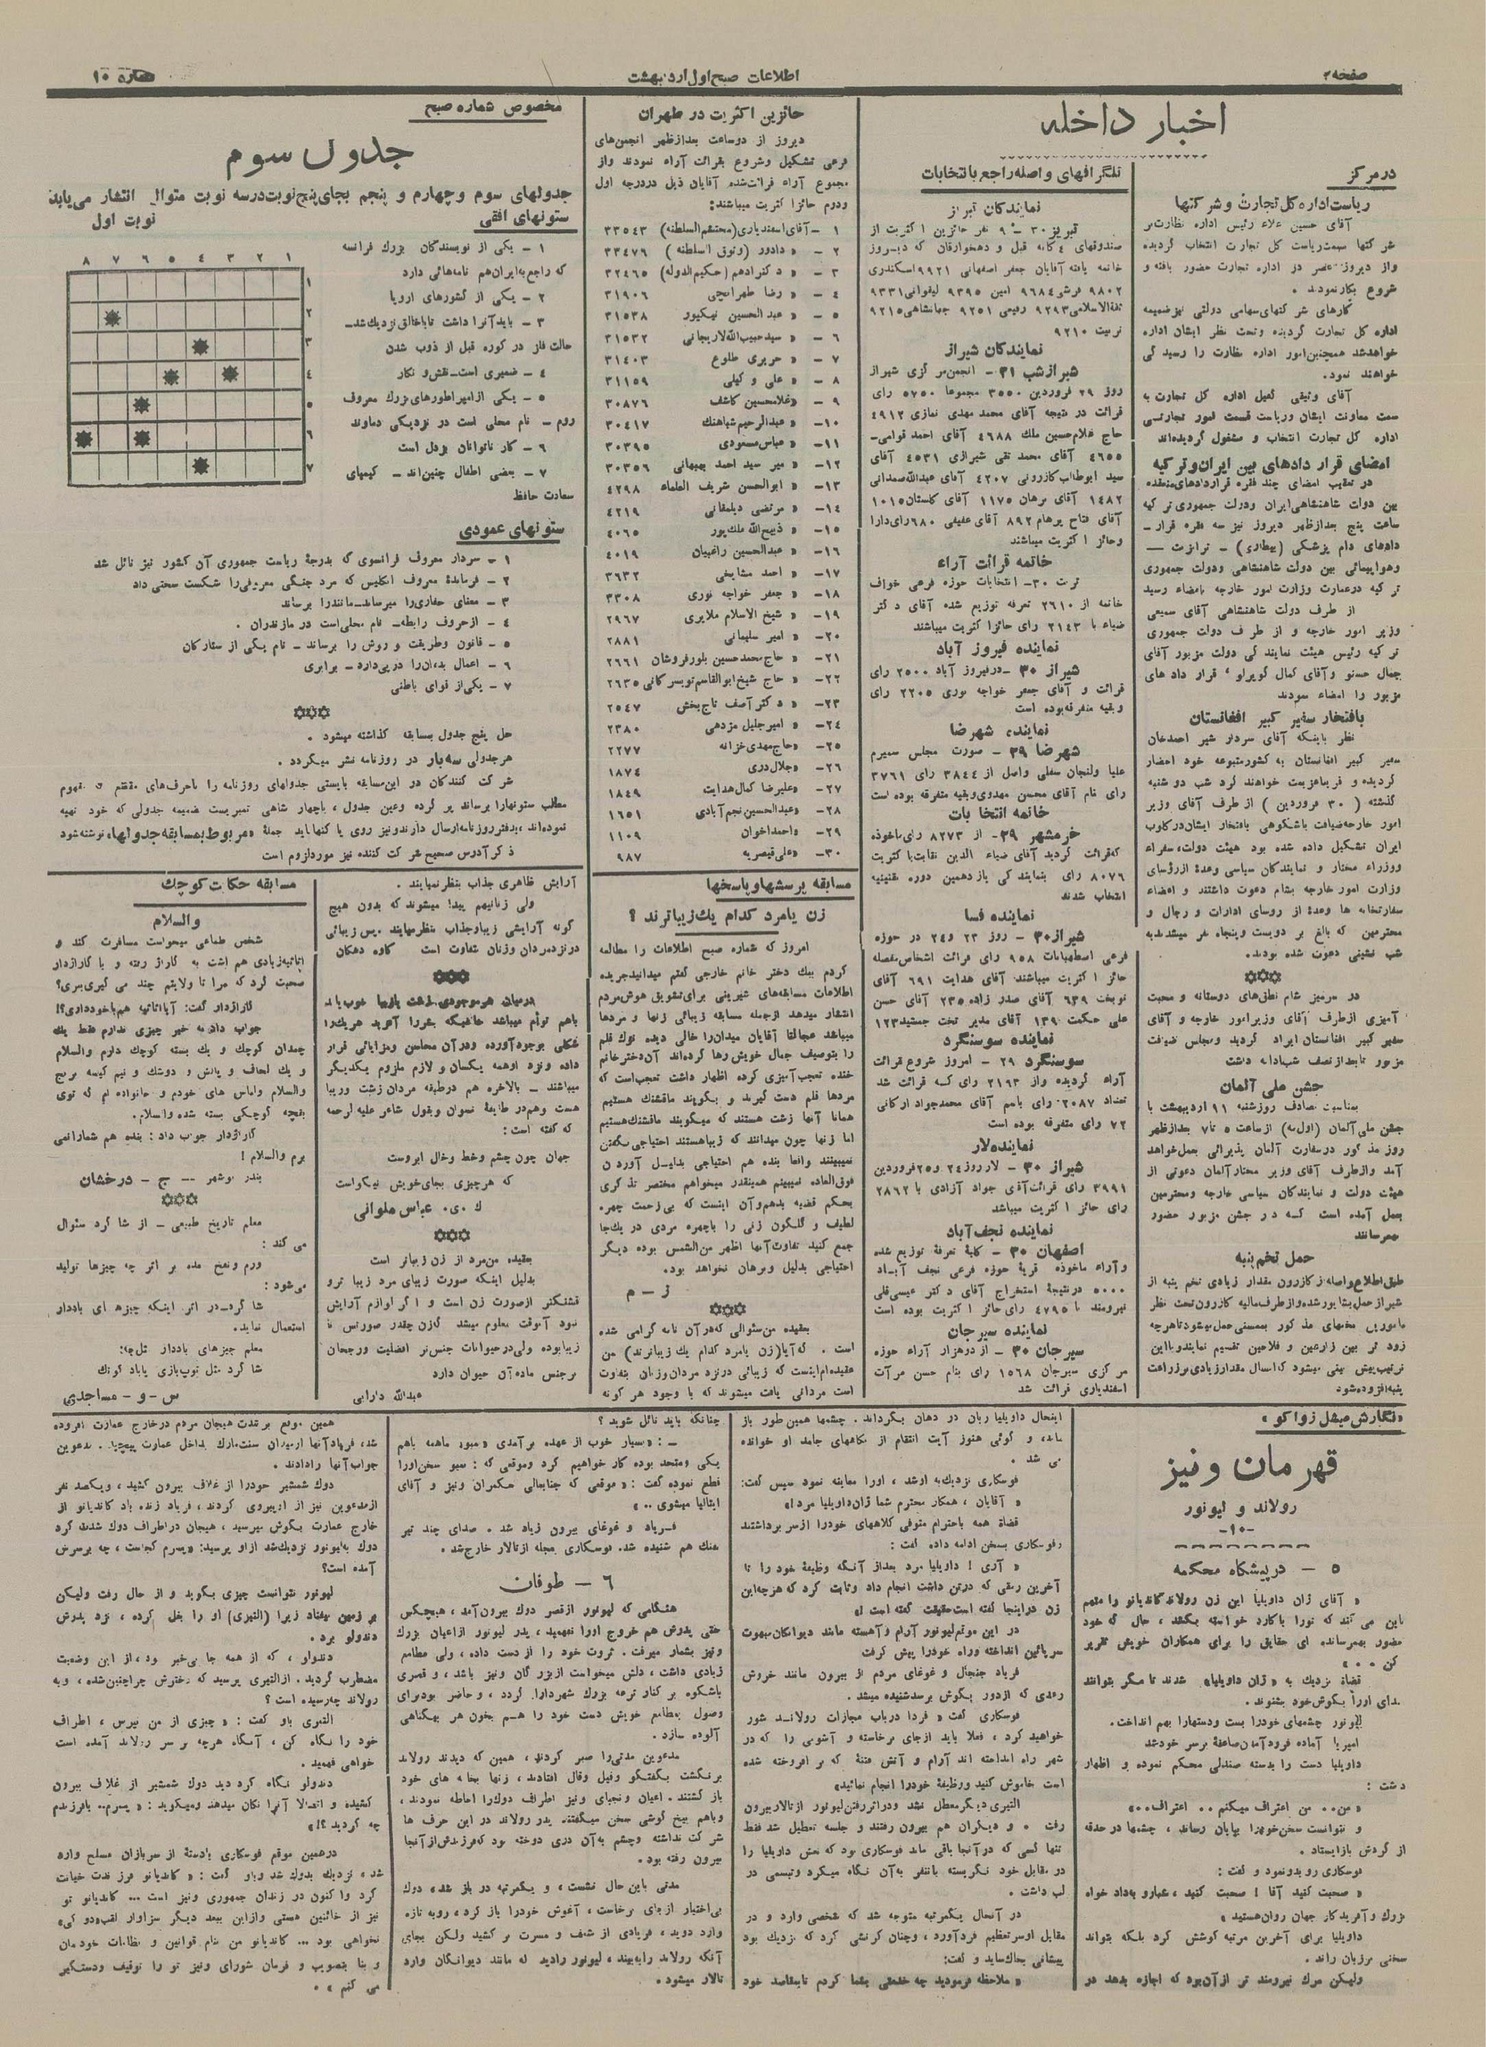 صفحه ۲
اطلاعات صبح اول اردیبهشت
شماره ۱۰
اخبار داخله
در مرکز
ریاست اداره کل تجارت و شرکتها
آقای حسین علاء رئیس اداره نظارت بر
شرکتها بسمت ریاست کل تجارت انتخاب گردیده
و از دیروز عصر در اداره تجارت حضور یافته و
شروع بکار نمودند .
کارهای شرکتهای سهامی دولتی نیز ضمیمه
اداره کل تجارت گردیده و تحت نظر ایشان اداره
خواهد شد همچنین امور اداره نظارت را رسیدگی
خواهند نمود.
آقای وثیقی کفیل اداره کل تجارت به
سمت معاونت ایشان و ریاست قسمت امور تجارتی
اداره کل تجارت انتخاب و مشغول گردیده‌اند
امضای قرار دادهای بین ایران و ترکیه
در تعقیب امضای چند فقره قراردادهای منعقده
بین دولت شاهنشاهی ایران و دولت جمهوری ترکیه
ساعت پنج بعد از ظهر دیروز نیز سه فقره قرار-
دادهای دام پزشکی (بیطاری) - ترانزیت —
و هواپیمائی بین دولت شاهنشاهی و دولت جمهوری
ترکیه در عمارت وزارت امور خارجه بامضاء رسید
از طرف دولت شاهنشاهی آقای سمیعی
وزیر امور خارجه و از طرف دولت جمهوری
ترکیه رئیس هیئت نمایندگی دولت مزبور آقای
جمال حسنو و آقای کمال کوپرلو ، قرار دادهای
مزبور را امضاء نمودند
بافتخار سفیر کبیر افغانستان
نظر باینکه آقای سردار شیر احمد خان
سفیر کبیر افغانستان به کشور متبوعه خود احضار
گردیده و قریبا عزیمت خواهند کرد شب دوشنبه
گذشته ( ۳۰ فروردین ) از طرف آقای وزیر
امور خارجه ضیافت باشکوهی بافتخار ایشان در کلوب
ایران تشکیل داده شده بود هیئت دولت، سفراء
و وزراء مختار و نمایندگان سیاسی و عدهٔ از رؤسای
وزارت امور خارجه بشام دعوت داشتند و اعضاء
سفارتخانه ها وعدهٔ از روسای ادارات و رجال و
محترمین که بالغ بر دویست و پنجاه نفر میشدند به
شب نشینی دعوت شده بودند.
در سر میز شام نطق‌های دوستانه و محبت
آمیزی از طرف آقای وزیر امور خارجه و آقای
سفیر کبیر افغانستان ایراد گردید و مجلس ضیافت
مزبور تا بعد از نصف شب ادامه داشت
جشن ملی آلمان
بمناسبت تصادف روز شنبه ۱۱ اردیبهشت با
جشن ملی آلمان (اول مه) از ساعت ۵ تا ۷ بعد از ظهر
روز مذکور در سفارت آلمان پذیرائی بعمل خواهد
آمد و از طرف آقای وزیر مختار آلمان دعوتی از
هیئت دولت و نمایندگان سیاسی خارجه و محترمین
بعمل آمده است که در جشن مزبور حضور
بهمرسانند
حمل تخم پنبه
طبق اطلاع واصله از کازرون مقدار زیادی تخم پنبه از
شیراز حمل بشاپور شده و از طرف مالیه کازرون تحت نظر
مامورین تخمهای مذکور بممسنی حمل میشود تا هر چه
زود تر بین زارعین و فلاحین تقسیم نمایند و با این
ترتیب پیش بینی میشود که امسال مقدار زیادی بر زراعت
پنبه افزوده شود
تلگرافهای واصله راجع بانتخابات
نمایندگان تبریز
تبریز ۳۰ - ۹ نفر حائزین اکثریت از
صندوقهای ۶ گانه قبل و دهخوارقان که دیروز
خاتمه یافته آقایان جعفر اصفهانی ۹۹۲۱ اسکندری
۹۸۰۲ فرشی ۹۶۸۴ امین ۹۳۹۵ لیقوانی ۹۳۳۱
ثقةالاسلامی ۹۲۹۳ رفیعی ۹۲۵۱ جهانشاهی ۹۲۱۵
تربیت ۹۲۱۰
نمایندگان شیراز
شیراز شب ۳۱ - انجمن مرکزی شیراز
روز ۲۹ فروردین ۳۵۰۰ مجموعا ۵۷۵۰ رای
قرائت در نتیجه آقای محمد مهدی نمازی ۴۹۱۲
حاج غلامحسین ملک ۴۶۸۸ آقای احمد قوامی-
۴۶۵۵ آقای محمد تقی شیرازی ۴۵۳۱ آقای
سید ابوطالب کازرونی ۴۲۰۷ آقای عبدالله صمدانی
۱۴۸۲ آقای برهان ۱۱۷۵ آقای گلستان ۱۰۱۵
آقای فتاح پرهام ۸۹۲ آقای عفیفی ۶۸۰ رای دارا
و حائز اکثریت میباشند
خاتمه قرائت آراء
تربت ۳۰- انتخابات حوزه فرعی خواف
خاتمه از ۲۶۱۰ تعرفه توزیع شده آقای دکتر
ضیاء با ۲۱۴۳ رای حائز اکثریت میباشند
نماینده فیروز آباد
شیراز ۳۰ - در فیروز آباد ۲۵۰۰ رای
قرائت و آقای جعفر خواجه نوری ۲۲۰۵ رای
و بقیه متفرقه بوده است
نماینده شهرضا
شهرضا ۲۹ - صورت مجلس سمیرم
علیا و لنجان سفلی واصل از ۳۸۴۴ رای ۳۷۶۱
رای نام آقای محسن مهدوی و بقیه متفرقه بوده است
خاتمه انتخابات
خرمشهر ۲۹- از ۸۲۷۳ رای ماخوذه
که قرائت گردید آقای ضیاء الدین نقابت با کثریت
۸۰۷۶ رای بنمایندگی یازدهمین دوره تقنینیه
انتخاب شدند
نماینده فسا
شیراز ۳۰ - روز ۲۳ و ۲۴ در حوزه
فرعی اصطهبانات ۹۵۸ رای قرائت اشخاص مفصله
حائز اکثریت میباشند آقای هدایت ۶۹۱ آقای
نوبخت ۶۳۹ آقای صدر زاده ۲۳۵ آقای حسن
علی حکمت ۱۳۹ آقای مدیر تخت جمشید ۱۲۳
نماینده سوسنگرد
سوسنگرد ۲۹ - امروز شروع قرائت
آراء گردیده و از ۲۱۶۳ رای که قرائت شد
تعداد ۲۰۸۷ رای باسم آقای محمد جواد ارکانی
۷۲ رای متفرقه بوده است
نماینده لار
شیراز ۳۰ - لار روز ۲۴ و ۲۵ فروردین
۳۹۹۱ رای قرائت آقای جواد آزادی با ۲۸۶۲
رای حائز اکثریت میباشد
نماینده نجف آباد
اصفهان ۳۰ - کلیهٔ تعرفهٔ توزیع شده
و آراء ماخوذه قریهٔ حوزه فرعی نجف آباد
۵۰۰۰ در نتیجهٔ استخراج آقای دکتر عیسی قلی
نیرومند با ۴۷۹۵ رای حائز اکثریت بوده است
نماینده سیرجان
سیرجان ۳۰ - از دو هزار آراء حوزه
مرکزی سیرجان ۱۵۶۸ رای بنام حسن مرآت
اسفندیاری قرائت شد
حائزین اکثریت در طهران
دیروز از دو ساعت بعد از ظهر انجمن‌های
فرعی تشکیل و شروع بقرائت آراء نمودند و از
مجموع آراء قرائت شده آقایان ذیل در درجه اول
ودوم حائز اکثریت میباشند:
۱ - آقای اسفندیاری (محتشم السلطنه) ۳۳۵۴۳
۲ - « دادور (وثوق السلطنه ) ۳۳۴۷۹
۳ - « دکتر ادهم (حکیم الدوله) ۳۲۴۶۵
۴ - « رضا طهرانچی ۳۱۹۰۶
۵ - « عبدالحسین نیکپور ۳۱۵۳۸
۶ - « سید حبیب الله لاریجانی ۳۱۵۳۲
۷ - « حریری طلوع ۳۱۴۰۳
۸ - « علی وکیلی ۳۱۱۵۹
۹ - « غلامحسین کاشف ۳۰۸۷۶
۱۰- « عبدالرحیم شباهنگ ۳۰۴۱۷
۱۱- « عباس مسعودی ۳۰۳۹۵
۱۲- « میر سید احمد بهبهانی ۳۰۳۵۶
۱۳- « ابوالحسن شریف العلماء ۴۲۹۸
۱۴- « مرتضی دیلمقانی ۴۲۱۹
۱۵- « ذبیح الله ملک پور ۴۰۶۵
۱۶- « عبدالحسین راغبیان ۴۰۱۹
۱۷- « احمد مشایخی ۳۶۳۲
۱۸- « جعفر خواجه نوری ۳۳۰۸
۱۹- « شیخ الاسلام ملایری ۲۹۶۷
۲۰- « امیر سلیمانی ۲۸۸۱
۲۱- « حاج محمد حسین بلور فروشان ۲۶۶۱
۲۲- « حاج شیخ ابوالقاسم تویسرکانی ۲۶۳۵
۲۳- « دکتر آصف تاج بخش ۲۵۴۷
۲۴- « امیر جلیل مژدهی ۲۳۸۰
۲۵- « حاج مهدی خزانه ۲۲۷۷
۲۶- « جلال دری ۱۸۷۴
۲۷- « علیرضا کمال هدایت ۱۸۴۹
۲۸- « عبدالحسین نجم آبادی ۱۶۵۱
۲۹- « احمد اخوان ۱۱۰۹
۳۰- « علی قیصریه ۹۸۷
مخصوص شماره صبح
جدول سوم
جدولهای سوم و چهارم و پنجم بجای پنج نوبت در سه نوبت متوالی انتشار می‌یابد
ستونهای افقی نوبت اول
۱ - یکی از نویسندگان بزرگ فرانسه
که راجع به ایران هم نامه‌هائی دارد
۲ - یکی از کشورهای اروپا
۳ - باید آنرا داشت تا با خالق نزدیک شد—
حالت فلز در کوره قبل از ذوب شدن
۴ - ضمیری است - نقش و نگار
۵ - یکی از امپراطورهای بزرگ معروف
روم - نام محلی است در نزدیکی دماوند
۶ - کار ناتوانان بزدل است
۷ - بعضی اطفال چنین‌اند - کیمیای
سعادت حافظ
۱ ۲ ۳ ۴ ۵ ۶ ۷ ۸
۱
۲
۳
۴
۵
۶
۷
ستونهای عمودی
۱ - سردار معروف فرانسوی که بدرجهٔ ریاست جمهوری آن کشور نیز نائل شد
۲ - فرماندهٔ معروف انگلیس که مرد جنگی معروفی را شکست سختی داد
۳ - معنای حفاری را میرساند - مانند را برساند
۴ - از حروف رابطه - نام محلی است در مازندران .
۵ - قانون و طریقت و روش را برساند - نام یکی از ستارگان
۶ - اعمال بد، آن را در پی دارد - برابری
۷ - یکی از قوای باطنی
حل پنج جدول بمسابقه گذاشته میشود .
هر جدولی سه بار در روزنامه نشر میگردد .
شرکت کنندگان در این مسابقه بایستی جدولهای روزنامه را با حرف‌های مقطع که مفهوم
مطلب ستونها را برساند پر کرده و عین جدول ، با چهار شاهی تمبر پست ضمیمه جدولی که خود تهیه
نموده‌اند ، بدفتر روزنامه ارسال دارند و نیز روی پاکتها باید جملهٔ «مربوط بمسابقه جدولها» نوشته شود
ذکر آدرس صحیح شرکت کننده نیز مورد لزوم است
مسابقه پرسشها و پاسخها
زن یا مرد کدام یک زیباترند ؟
امروز که شماره صبح اطلاعات را مطالعه
کردم بیک دختر خانم خارجی گفتم میدانید جریده
اطلاعات مسابقه‌های شیرینی برای تشویق هوش مردم
انتشار میدهد از جمله مسابقه زیبائی زنها و مردها
میباشد عجالتا آقایان میدان را خالی دیده نوک قلم
را بتوصیف جمال خویش رها کرده‌اند آن دختر خانم
خنده تعجب آمیزی کرده اظهار داشت تعجب است که
مردها قلم دست گیرند و بگویند ماقشنگ هستیم
همانا آنها زشت هستند که میگویند ماقشنگ هستیم
اما زنها چون میدانند که زیبا هستند احتیاجی بگفتن
نمیبینند واقعا بنده هم احتیاجی بدلیل آوردن
فوق العاده نمیبینم همینقدر میخواهم مختصر تذکری
بحکم قضیه بدهم و آن اینست که بی زحمت چهره
لطیف و گلگون زنی را با چهره مردی در یک جا
جمع کنید تفاوت آنها اظهر من الشمس بوده دیگر
احتیاجی بدلیل و برهان نخواهد بود.
ز - م
بعقیده من سئوالی که در آن نامه گرامی شده
است . که آیا (زن یا مرد کدام یک زیباترند) من
عقیده‌ام اینست که زیبائی در نزد مردان و زنان بتفاوت
است مردانی یافت میشوند که با وجود هر گونه
آرایش ظاهری جذاب بنظر نمیایند .
ولی زنانیهم پیدا میشوند که بدون هیچ
گونه آرایشی زیبا و جذاب بنظر میایند . پس زیبائی
در نزد مردان و زنان متفاوت است کاوه دهکان
در میان هر موجودی زشت با زیبا خوب با بد
باهم توأم میباشد خالقیکه بشر را آفرید هر یک را
شکلی بوجود آورده و در آن محاسن و مزایائی قرار
داده و نزد او همه یکسان و لازم ملزوم یکدیگر
میباشند - بالاخره هم در طبقه مردان زشت و زیبا
هست و هم در طایفهٔ نسوان و بقول شاعر علیه لرحمه
که گفته است :
جهان چون چشم و خط و خال ابروست
که هر چیزی بجای خویش نیکوست
ک . ی . عباس ملوانی
بعقیده من مرد از زن زیباتر است
بدلیل اینکه صورت زیبای مرد زیبا تر و
قشنگتر از صورت زن است و اگر لوازم آرایش
نبود آنوقت معلوم میشد که زن چقدر صورتش نا
زیبا بوده ولی در حیوانات جنس نر افضلیت و رجحان
بر جنس ماده آن حیوان دارد
عبدالله دارابی
مسابقه حکایت کوچک
والسلام
شخص طماعی میخواست مسافرت کند و
اثاثیه زیادی هم داشت به گاراژ رفته و با گاراژدار
صحبت کرد که مرا تا ولایتم چند می گیری ببری؟
گاراژدار گفت: آیا اثاثیه هم با خود داری؟!
جواب داد نه خیر چیزی ندارم فقط یک
چمدان کوچک و یک بسته کوچک دارم والسلام
و یک لحاف و بالش و دوشک و نیم کیسه برنج
والسلام و لباس های خودم و خانواده‌ام که توی
بقچه کوچکی بسته شده والسلام.
گاراژدار جواب داد : بنده هم شما را نمی
برم والسلام !
بندر بوشهر — ج - درخشان
معلم تاریخ طبیعی - از شاگرد سئوال
می کند :
ورم و نفخ معده بر اثر چه چیزها تولید
می‌شود :
شاگرد - در اثر اینکه چیزهای بادار
استعمال نماید.
معلم چیزهای باددار مثل چه :
شاگرد مثل توپ بازی یا باد کونک
س - و - مساجدیی
«نگارش میشل زواکو»
قهرمان ونیز
رولاند و لیونور
-۱۰-
۵ - در پیشگاه محکمه
« آقای ژان داویلیا این زن رولاند کاندیانو را متهم
باین می‌کند که تو را با کارد خواسته بکشد ، حال که خود
حضور بهمرسانده ای حقایق را برای همکاران خویش تقریر
کن . . »
قضاة نزدیک به « ژان داویلیا» شدند تا مگر بتوانند
صدای او را بگوش خود بشنوند .
لیونور چشمهای خود را بست و دستها را بهم انداخت.
امپریا آماده فرود آمدن صاعقهٔ بر سر خود شد
داویلیا دست را بدسته صندلی محکم نموده و اظهار
داشت :
« من . . من اعتراف میکنم . . اعتراف . . »
و نتوانست سخن خود را بپایان رساند ، چشمها در حدقه
از گردش باز ایستاد .
فوسکاری رو بدو نمود و گفت :
« صحبت کنید آقا ! صحبت کنید ، عبارو به داد خواه
بزرگ و آفریدگار جهان روان هستید »
داویلیا برای آخرین مرتبه کوشش کرد بلکه بتواند
سخنی بر زبان راند .
ولیکن مرگ نیرومند تر از آن بود که اجازه بدهد در
اینحال داویلیا زبان در دهان بگرداند . چشمها همین طور باز
ماند، و گوئی هنوز آیت انتقام از نگاههای جامد او خوانده
می شد .
فوسکاری نزدیک به او شد ، او را معاینه نمود سپس گفت:
« آقایان ، همکار محترم شما ژان داویلیا مرد! »
قضاة همه باحترام متوفی کلاههای خود را از سر برداشتند
و فوسکاری بسخن ادامه داده گفت :
« آری ! داویلیا مرد بعد از آنکه وظیفهٔ خود را تا
آخرین رمقی که در تن داشت انجام داد و ثابت کرد که هر چه این
زن در اینجا گفته است حقیقت گفته است !»
در این موقع لیونور آرام و آهسته مانند دیوانگان مبهوت
سر پائین انداخته و راه خود را پیش گرفت
فریاد جنجال و غوغای مردم از بیرون مانند خروش
رعدی که از دور بگوش برسد شنیده میشد .
فوسکاری گفت « فردا در باب مجازات رولاند شور
خواهید کرد ، فعلا باید از جای برخاسته و آشوبی را که در
شهر راه انداخته اند آرام و آتش فتنهٔ که بر افروخته شده
است خاموش کنید و وظیفهٔ خود را انجام نمائید»
التیری دیگر معطل نشد و در اثر رفتن لیونور از تالار بیرون
رفت . و دیگران هم بیرون رفتند و جلسه تعطیل شد فقط
تنها کسی که در آنجا باقی ماند فوسکاری بود که نعش داویلیا را
در مقابل خود نگریسته با تنفر به آن نگاه میکرد و تبسمی در
لب داشت .
در آنحال یکمرتبه متوجه شد که شخصی وارد و در
مقابل او سر تعظیم فرد آورد ، و چنان کرنشی کرد که نزدیک بود
پیشانی بخاک ساید و گفت:
« ملاحظه فرمودید چه خدمتی بشما کردم تا بمقاصد خود
چنانکه باید نائل شوید ؟
- : «بسیار خوب از عهده برآمدی «بمبو» ما همه باهم
یکی و متحد بوده کار خواهیم کرد و موقعی که : بمبو سخن او را
قطع نموده گفت : « موقعی که جنابعالی حکمران ونیز و آقای
ایتالیا میشوی . . »
فریاد و غوغای بیرون زیاد شد . صدای چند تیر
تفنگ هم شنیده شد. فوسکاری بعجله از تالار خارج شد .
۶ - طوفان
هنگامی که لیونور از قصر دوک بیرون آمد ، هیچکس
حتی پدرش هم خروج او را نفهمید . پدر لیونور از اعیان بزرگ
ونیز بشمار میرفت . ثروت خود را از دست داده ، ولی مطامع
زیادی داشت ، دلش میخواست از بزرگان ونیز باشد ، و قصری
باشکوه بر کنار ترعه بزرگ شهر دارا گردد ، و حاضر بود برای
وصول بمطامع خویش دست خود را هم بخون هر بیگناهی
آلوده سازد .
مدعوین مدتی را صبر کردند ، همین که دیدند رولاند
برنگشت بگفتگو و قیل و قال افتادند ، زنها بخانه های خود
باز گشتند . اعیان و نجبای ونیز اطراف دوک را احاطه نمودند ،
و باهم بیخ گوشی سخن میگفتند . پدر رولاند در این حرف ها
شرکت نداشته و چشم به آن دری دوخته بود که فرزندش از آنجا
بیرون رفته بود .
مدتی باین حال نشست ، و یکمرتبه در باز شد ، دوک
بی اختیار از جای برخاست ، آغوش خود را باز کرد ، رو به تازه
وارد دوید ، فریادی از شعف و مسرت بر کشید ولیکن بجای
آنکه رولاند را به بیند ، لیونور را دید که مانند دیوانگان وارد
تالار میشود .
همین موقع بر شدت هیجان مردم در خارج عمارت افزوده
شد ، فریاد آنها از میدان سنت مارک بداخل عمارت پیچید . مدعوین
جواب آنها را دادند .
دوک شمشیر خود را از غلاف بیرون کشید ، و یکصد نفر
از مدعوین نیز از او پیروی کردند ، فریاد زنده باد کاندیانو از
خارج عمارت بگوش میرسید ، هیجان در اطراف دوک شدت کرد
دوک به لیونور نزدیک شد از او پرسید: «پسرم کجاست ، چه بر سرش
آمده است؟
لیونور نتوانست چیزی بگوید و از حال رفت ولیکن
بر زمین نیفتاد زیرا (التیری) او را بغل کرده ، نزد پدرش
دندولو برد .
دندولو ، که از همه جا بی خبر بود ، از این وضعیت
مضطرب گردید . از التیری پرسید که دخترش چرا چنین شده ، و به
رولاند چه رسیده است ؟
التیری باو گفت : « چیزی از من نپرس ، اطراف
خود را نگاه کن ، آنگاه هر چه بر سر رولاند آمده است
خواهی فهمید .
دندولو نگاه کرد دید دوک شمشیر از غلاف بیرون
کشیده و اتصالا آنرا تکان میدهد و میگوید : « پسرم . . با فرزندم
چه کردید ؟! »
در همین موقع فوسکاری با دستهٔ از سربازان مسلح وارد
شد ، نزدیک بدوک شد و باو گفت : « کاندیانو فرزندت خیانت
کرد و اکنون در زندان جمهوری ونیز است ... کاندیانو تو
نیز از خائنین هستی و از این ببعد دیگر سزاوار لقب «دوکی»
نخواهی بود ... کاندیانو من بنام قوانین و نظامات خودمان
و بنا بتصویب و فرمان شورای ونیز تو را توقیف و دستگیر
می کنم » .